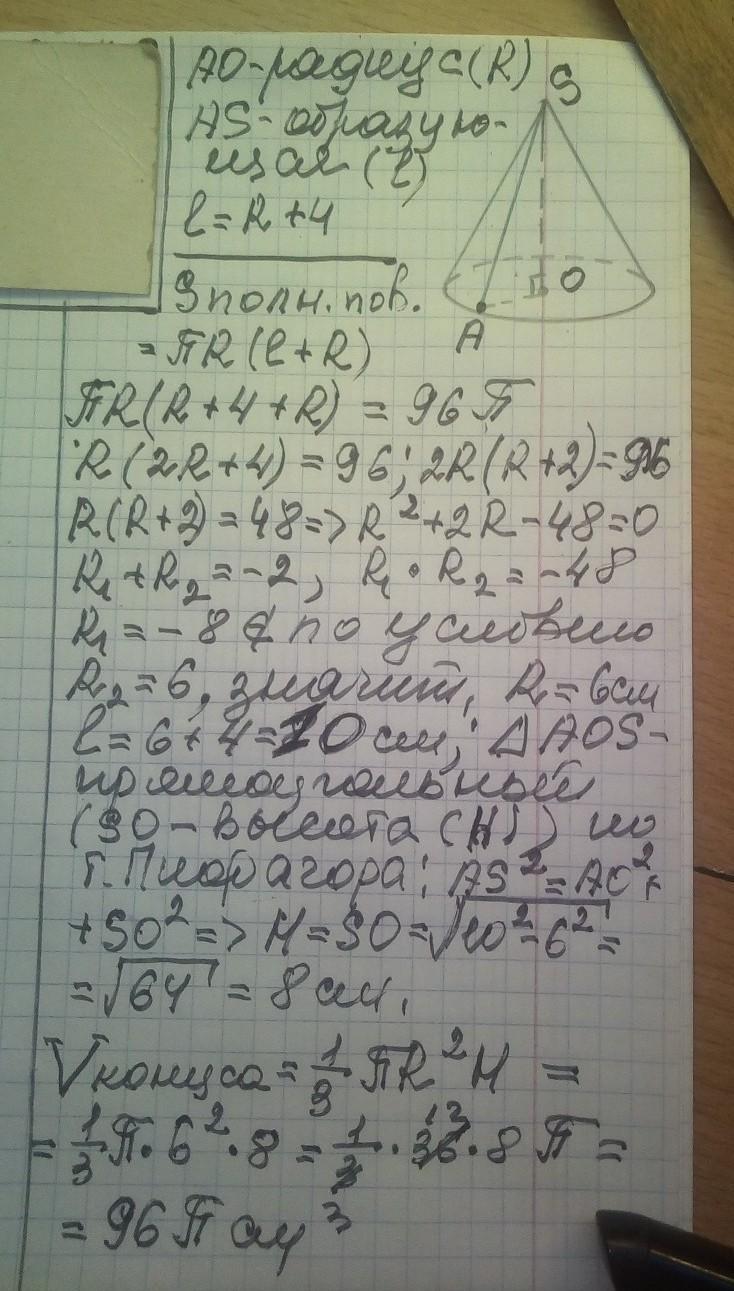 АО-радиус(R)
AS-образую-
щая (l)
l=R+4
Sполн.пов.
=ПR(l+R)
ПR(R+4+R)=96П
R(2R+4)=96; 2R(R+2)=96
R(R+2)=48=>R²+2R-48=0
R₁+R₂=-2, R₁·R₂=-48
R₁=-8 ∉ по условию
R₂=6, значит, R=6см
l=6+4=10см; △AOS-
прямоугольный
(SO-высота (H)) по
т.Пифагора: AS²=AO²+
+SO²=> H=SO=√10²-6²=
=√64=8см.
Vконуса=1/3ПR²H=
=1/3П·6²·8=1/3·36·8П=
12
=96Псм³
S
O
A